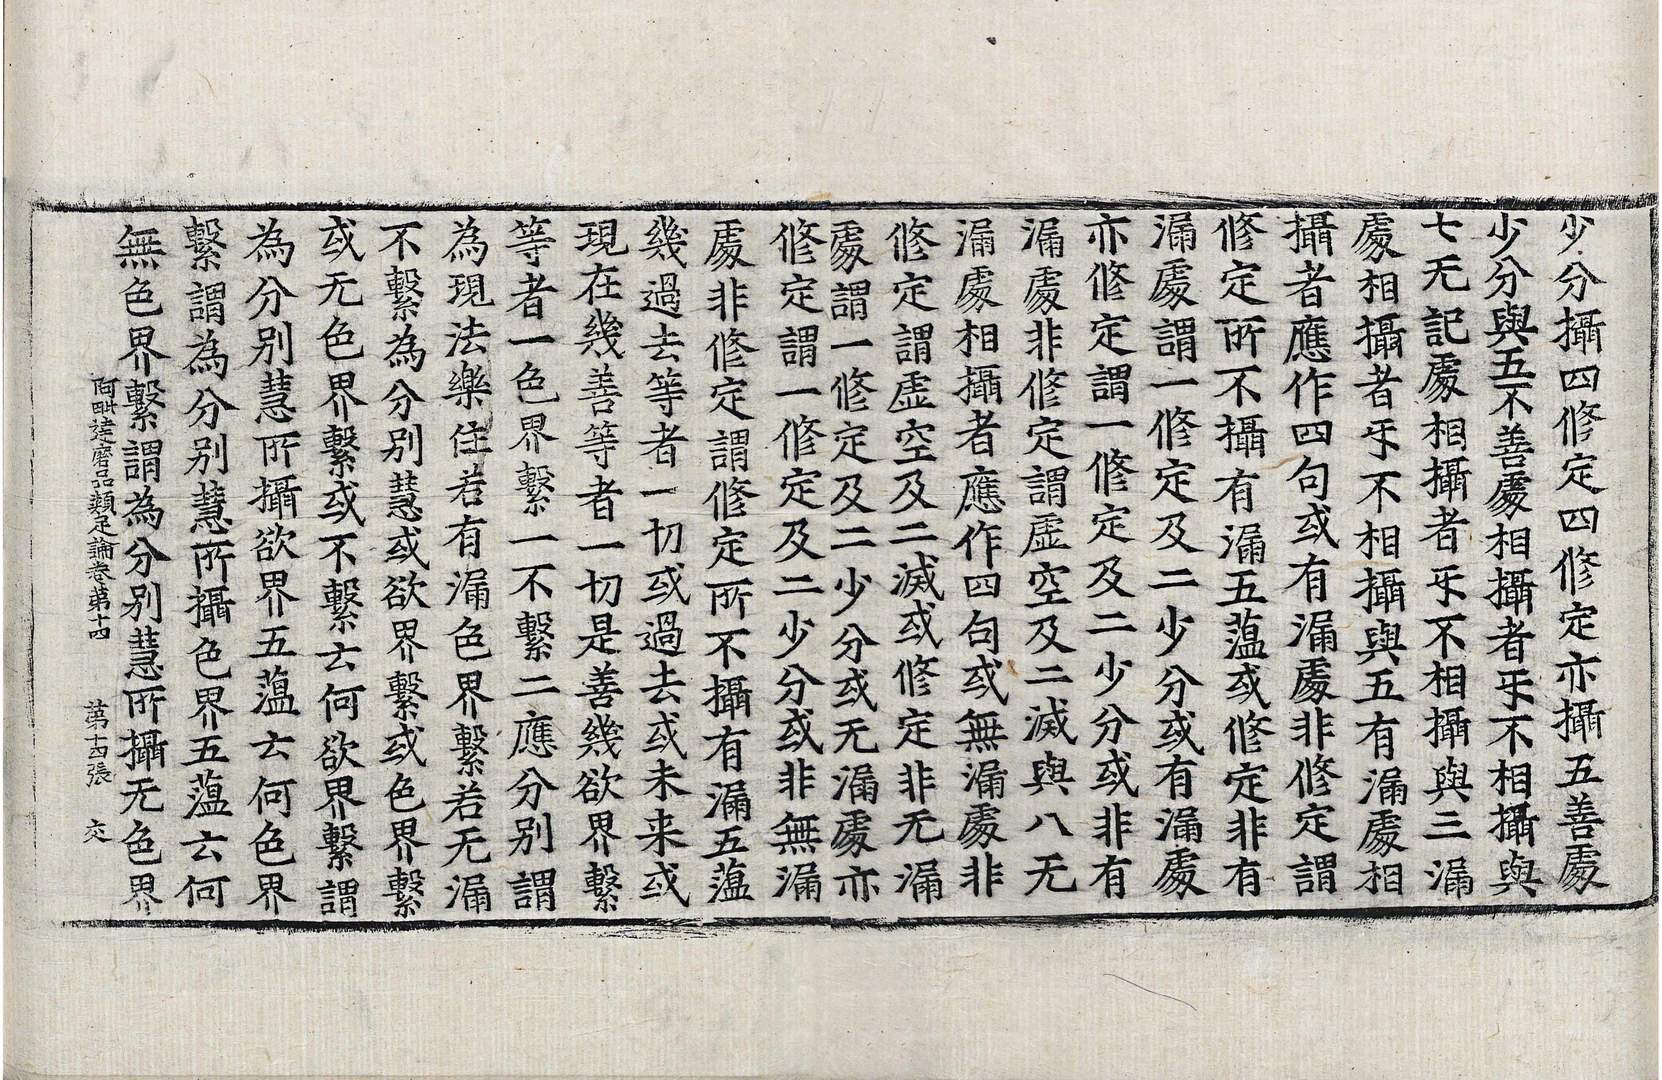 少分攝四修定四修定亦攝五善處
少分與五不善處相攝者乐不相攝與
七无記處相攝者乐不相攝與三漏
處相攝者乐不相攝與五有漏處相
攝者應作四句或有漏處非修定謂
修定所不攝有漏五蕰或修定非有
漏處謂一修定及二少分或有漏處
亦修定謂一修定及二少分或非有
漏處非修定謂虛空及二滅與八无
漏處相攝者應作四句或無漏處非
修定謂虛空及二滅或修定非无漏
處謂一修定及二少分或无漏處亦
修定謂一修定及二少分或非無漏
處非修定謂修定所不攝有漏五蕰
幾過去等者一切或過去或未来或
現在幾善等者一切是善幾欲界繫
等者一色界繫一不繫二應分別謂
為現法樂住若有漏色界繫若无漏
不繫為分別慧或欲界繫或色界繫
或无色界繫或不繫云何欲界繫謂
為分別慧所攝欲界五蕰云何色界
繫謂為分別慧所攝色界五蕰云何
無色界繫謂為分別慧所攝无色界
阿毗達磨品類足論卷第十四 第十四張 交